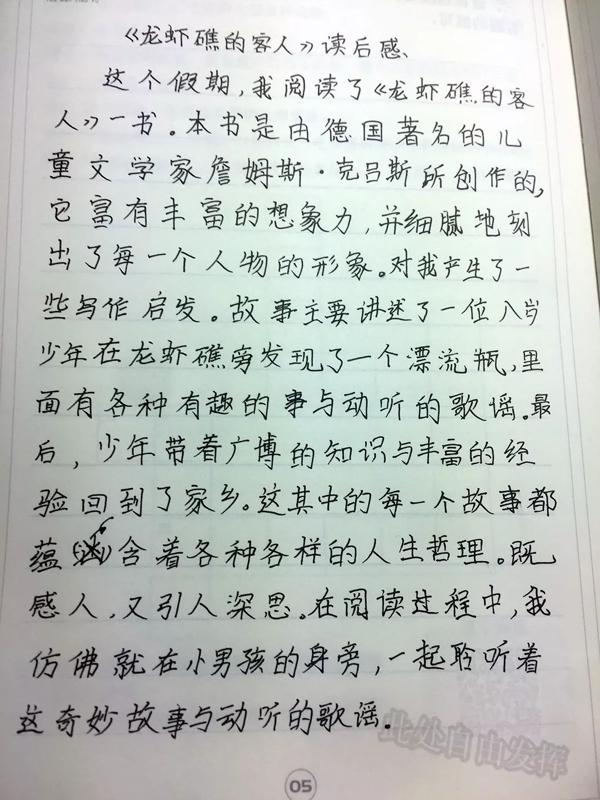 《龙虾礁的客人》读后感、
这个假期,我阅读了《龙虾礁的客
人》一书。本书是由德国著名的儿
童文学家詹姆斯·克吕斯所创作的,
它富有丰富的想象力,并细腻地刻
出了每一个人物的形象。对我产生了一
些写作启发。故事主要讲述了一位八岁
少年在龙虾礁旁发现了一个漂流瓶,里
面有各种有趣的事与动听的歌谣。最
后,少年带着广博的知识与丰富的经
验回到了家乡。这其中的每一个故事都
蕴含着各种各样的人生哲理。既
感人,又引人深思。在阅读过程中,我
仿佛就在小男孩的身旁,一起聆听着
这奇妙故事与动听的歌谣。
此处自由发挥
05